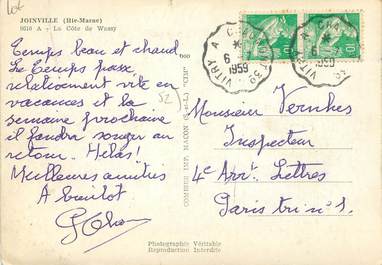 JOINVILLE (Hte-Marne)
9610 A - La Côte de Wassy
Temps beau et chaud
Le Temps passe
relativement vite en
vacances et la
semaine prochaine
il faudra songer au
retour. Hélas!
Meilleures amitiés
A bientôt
COMBIER IMP. MACON (S.-et-L.) "CIM"
VITRY A
6
1959
VITRY A
6
Monsieur Vernhes
Inspecteur
4e Arrt. Lettres
Paris tri n° 1.
Photographie Véritable
Reproduction Interdite